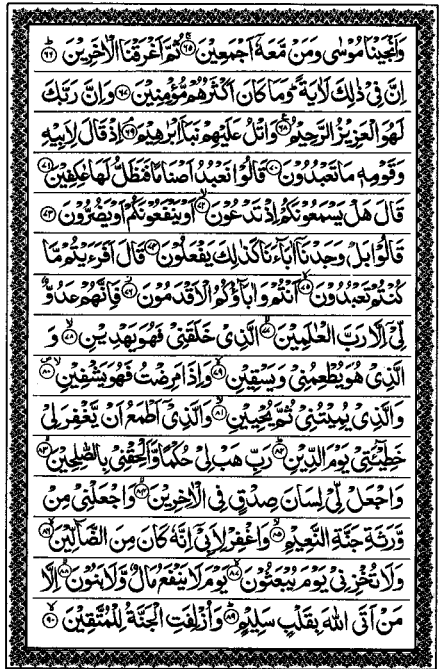 وَاَنْجَيْنَا مُوْسٰى وَمَنْ مَّعَهٗٓ اَجْمَعِيْنَ ۝۶۵ ثُمَّ اَغْرَقْنَا الْاٰخَرِيْنَ ۝۶۶
اِنَّ فِيْ ذٰلِكَ لَاٰيَةً ؕ وَمَا كَانَ اَكْثَرُهُمْ مُّؤْمِنِيْنَ ۝۶۷ وَاِنَّ رَبَّكَ
لَهُوَ الْعَزِيْزُ الرَّحِيْمُ ۝۶۸ وَاتْلُ عَلَيْهِمْ نَبَاَ اِبْرٰهِيْمَ ۝۶۹ اِذْ قَالَ لِاَبِيْهِ
وَقَوْمِهٖ مَا تَعْبُدُوْنَ ۝۷۰ قَالُوْا نَعْبُدُ اَصْنَامًا فَنَظَلُّ لَهَا عٰكِفِيْنَ ۝۷۱
قَالَ هَلْ يَسْمَعُوْنَكُمْ اِذْ تَدْعُوْنَ ۝۷۲ اَوْ يَنْفَعُوْنَكُمْ اَوْ يَضُرُّوْنَ ۝۷۳
قَالُوْا بَلْ وَجَدْنَآ اٰبَآءَنَا كَذٰلِكَ يَفْعَلُوْنَ ۝۷۴ قَالَ اَفَرَءَيْتُمْ مَّا
كُنْتُمْ تَعْبُدُوْنَ ۝۷۵ اَنْتُمْ وَاٰبَآؤُكُمُ الْاَقْدَمُوْنَ ۝۷۶ فَاِنَّهُمْ عَدُوٌّ
لِّيْٓ اِلَّا رَبَّ الْعٰلَمِيْنَ ۝۷۷ الَّذِيْ خَلَقَنِيْ فَهُوَ يَهْدِيْنِ ۝۷۸ وَ
الَّذِيْ هُوَ يُطْعِمُنِيْ وَيَسْقِيْنِ ۝۷۹ وَاِذَا مَرِضْتُ فَهُوَ يَشْفِيْنِ ۝۸۰
وَالَّذِيْ يُمِيْتُنِيْ ثُمَّ يُحْيِيْنِ ۝۸۱ وَالَّذِيْٓ اَطْمَعُ اَنْ يَّغْفِرَ لِيْ
خَطِيْٓـَٔتِيْ يَوْمَ الدِّيْنِ ۝۸۲ رَبِّ هَبْ لِيْ حُكْمًا وَّاَلْحِقْنِيْ بِالصّٰلِحِيْنَ ۝۸۳
وَاجْعَلْ لِّيْ لِسَانَ صِدْقٍ فِي الْاٰخِرِيْنَ ۝۸۴ وَاجْعَلْنِيْ مِنْ
وَّرَثَةِ جَنَّةِ النَّعِيْمِ ۝۸۵ وَاغْفِرْ لِاَبِيْٓ اِنَّهٗ كَانَ مِنَ الضَّآلِّيْنَ ۝۸۶
وَلَا تُخْزِنِيْ يَوْمَ يُبْعَثُوْنَ ۝۸۷ يَوْمَ لَا يَنْفَعُ مَالٌ وَّلَا بَنُوْنَ ۝۸۸ اِلَّا
مَنْ اَتَى اللّٰهَ بِقَلْبٍ سَلِيْمٍ ۝۸۹ وَاُزْلِفَتِ الْجَنَّةُ لِلْمُتَّقِيْنَ ۝۹۰